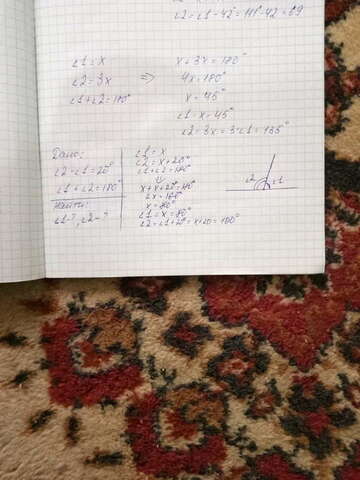 ∠2 = ∠1 - 42° = 111° - 42 = 69
∠1 = x
∠2 = 3x
∠1 + ∠2 = 180°
=>
x + 3x = 180°
4x = 180°
x = 45°
∠1 = x = 45°
∠2 = 3x = 3·∠1 = 135°
Дано:
∠2 - ∠1 = 20°
∠1 + ∠2 = 180°
Найти:
∠1 - ?, ∠2 - ?
∠1 = x
∠2 = x + 20°
∠1 + ∠2 = 180°
x + x + 20° = 180°
2x = 160°
x = 80°
∠1 = x = 80°
∠2 = ∠1 + 20° = x + 20 = 100°
∠2
∠1